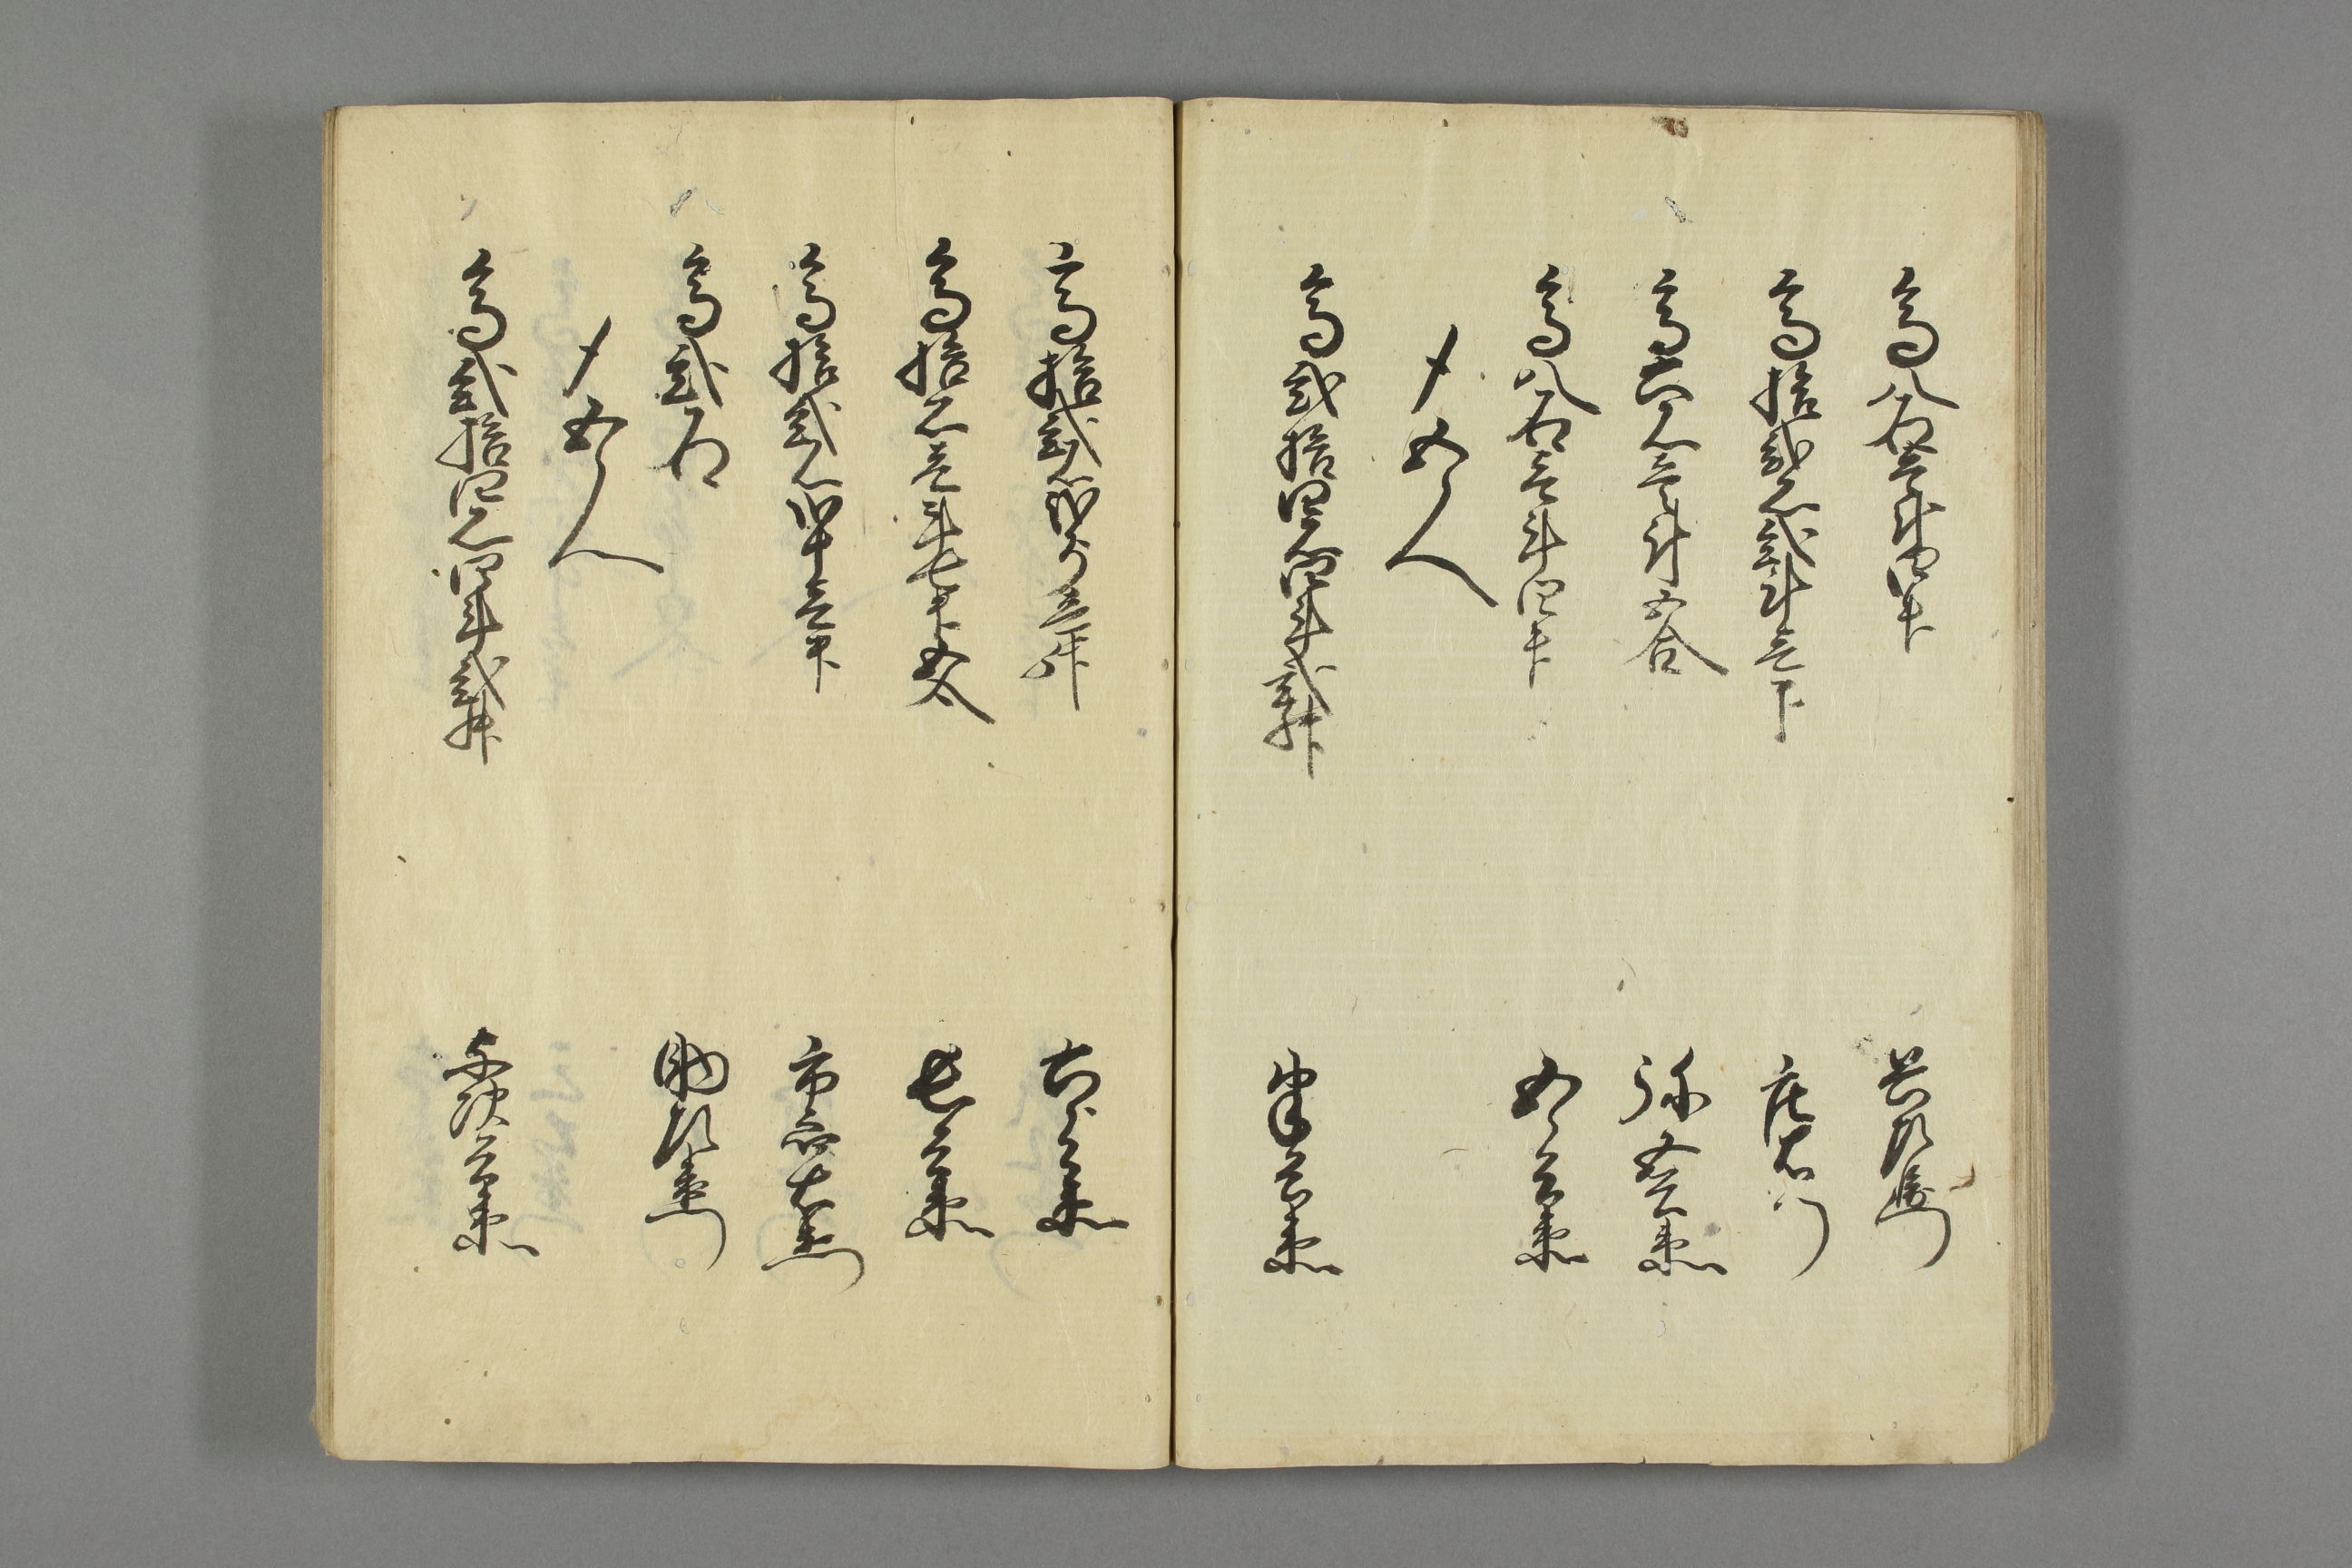 高八石壱斗四升
高拾弐石弐斗壱升
高六石壱斗五合
高八石壱斗四升
〆五人
高弐拾四石四斗弐升
庄右衛門
弥五兵衛
五兵衛
半兵衛
高拾弐石
高拾石壱斗七升五合
高拾弐石
高弐石
〆五人
高弐拾四石四斗弐升
吉兵衛
七兵衛
市郎左衛門
助左衛門
与次兵衛